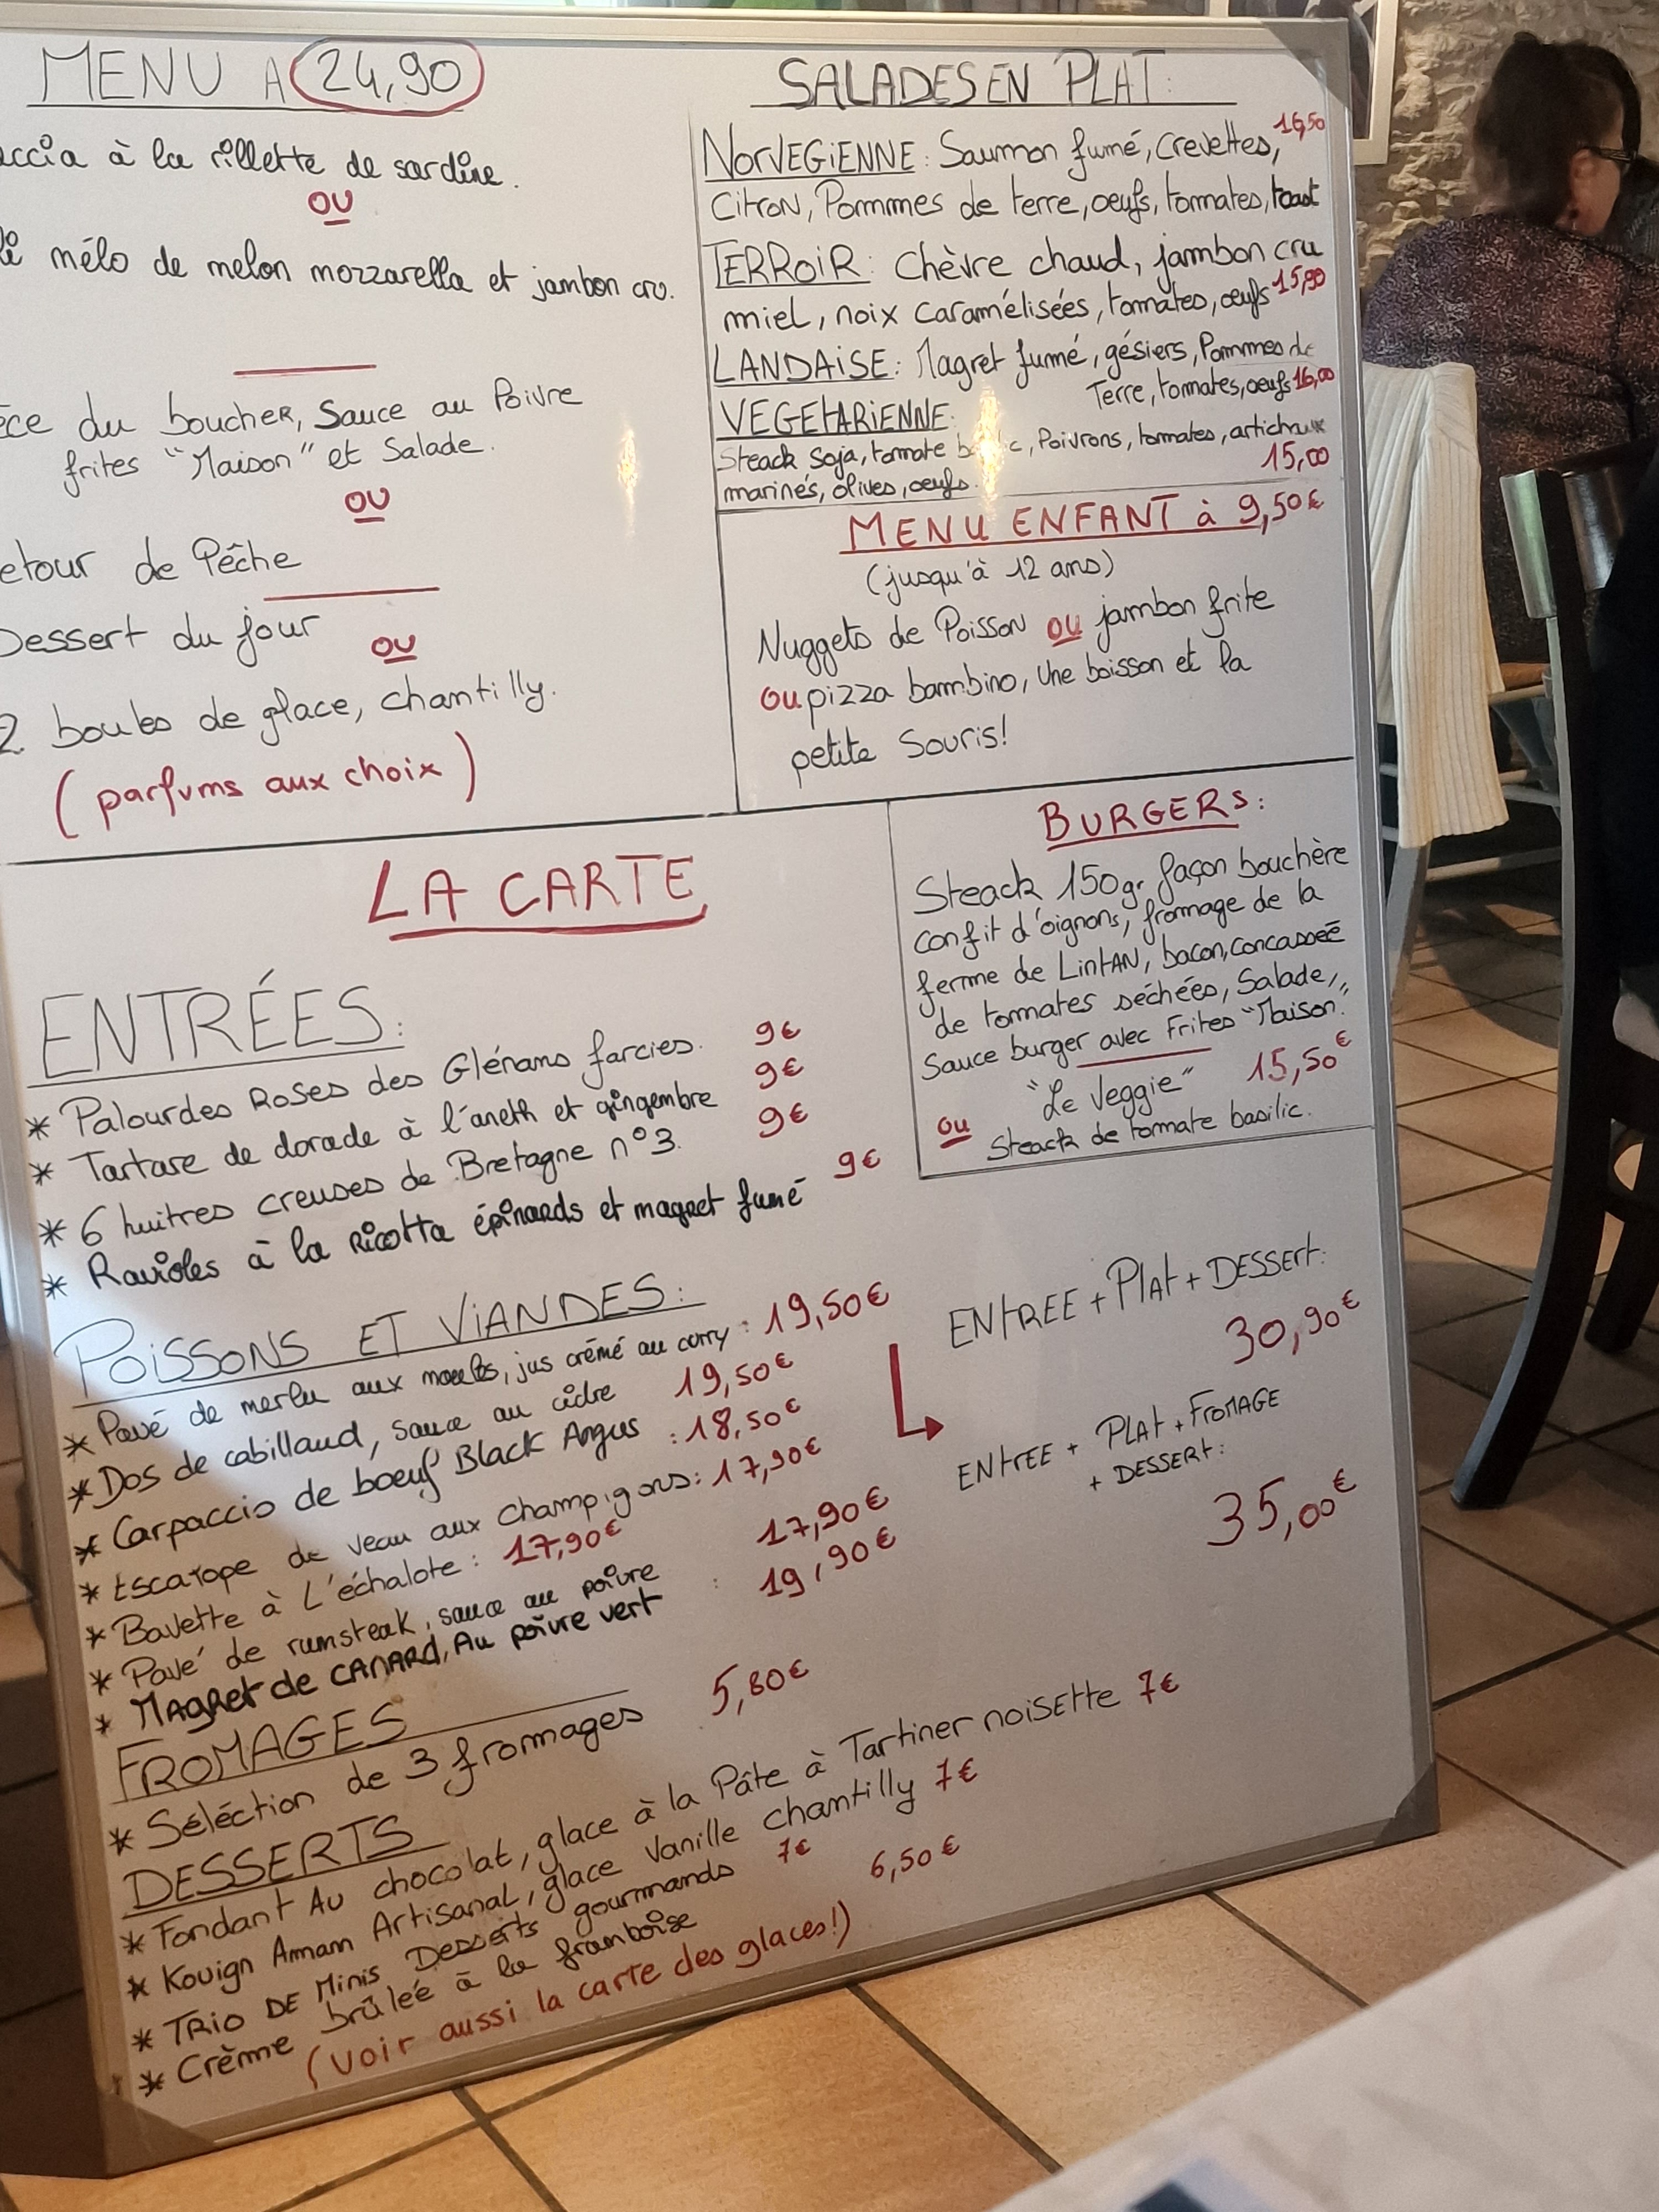 MENU A 24,90
à la rillette de sardine.
OU
mélo de melon mozzarella et jambon cru.
du boucher, Sauce au Poivre
frites "Maison" et Salade.
OU
de Pêche
Dessert du jour
OU
2 boules de glace, chantilly.
(parfums aux choix)
SALADES EN PLAT:
NORVEGIENNE: Saumon fumé, Crevettes, 16,50
Citron, Pommes de terre, oeufs, tomates, toast
TERROIR: Chèvre chaud, jambon cru
miel, noix caramélisées, tomates, oeufs 15,90
LANDAISE: Magret fumé, gésiers, Pommes de
Terre, tomates, oeufs 16,00
VEGETARIENNE:
Steack Soja, tomate Poivrons, tomates, artichaux
15,00
marinés, olives, oeufs.
MENU ENFANT à 9,50€
(jusqu'à 12 ans)
Nuggets de Poisson ou jambon frite
ou pizza bambino, Une boisson et la
petite Souris!
BURGERS:
Steack 150gr façon bouchère
confit d'oignons, fromage de la
ferme de LintAN, bacon, concassée
de tomates séchées, Salade,
Sauce burger avec Frites "Maison".
"Le Veggie" 15,50€
ou
Steack de tomate basilic.
LA CARTE
ENTRÉES:
* Palourdes Roses des Glénans farcies. 9€
* Tartare de dorade à l'aneth et gingembre 9€
* 6 huitres creuses de Bretagne n°3. 9€
* Ravioles à la Ricotta épinards et magret fumé 9€
POISSONS ET VIANDES:
* Pavé de merlu aux moules, jus crémé au curry: 19,50€
* Dos de cabillaud, sauce au cidre 19,50€
* Carpaccio de boeuf Black Angus: 18,50€
* Escalope de veau aux Champignons: 17,90€
* Bavette à L'échalote: 17,90€
* Pavé de rumsteak, sauce au poivre 17,90€
* MAGRet de CANARd, Au poivre vert : 19,90€
FROMAGES
* Séléction de 3 fromages 5,80€
DESSERTS
* Fondant Au chocolat, glace à la Pâte à Tartiner noisette 7€
* Kouign Amam Artisanal, glace Vanille chantilly 7€
* TRIO DE Minis Desserts gourmands 7€
* Crème brûlée à la framboise 6,50€
(Voir aussi la carte des glaces!)
ENTREE + Plat + DESSERT:
30,90€
ENTREE + PLAt + FROMAGE
+ DESSERt:
35,00€